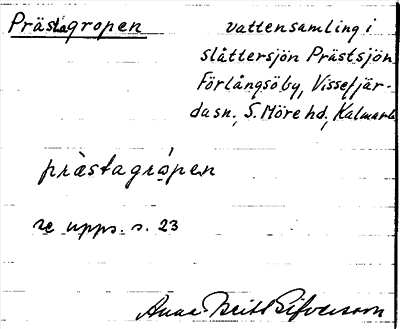 Prästagropen
vattensamling i
slåttersjön Prästsjön
Förlångsöby, Vissefjär-
dasn., S. Möre hd, Kalmarl
prästagrópen
se upps. s. 23
Anna-Britt